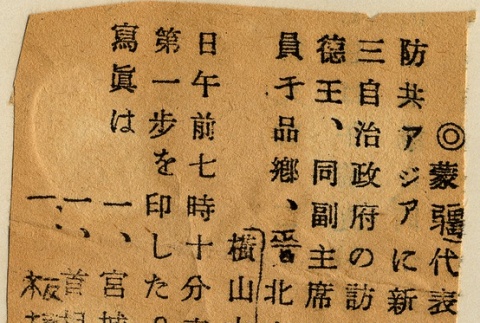 ◎蒙疆代表
防共アジアに新
三自治政府の訪
德王、同副主席
員于品郷、晋北
橫山
日午前七時十分
第一步を印した
寫眞は
一、宮城
一、首相
一、板